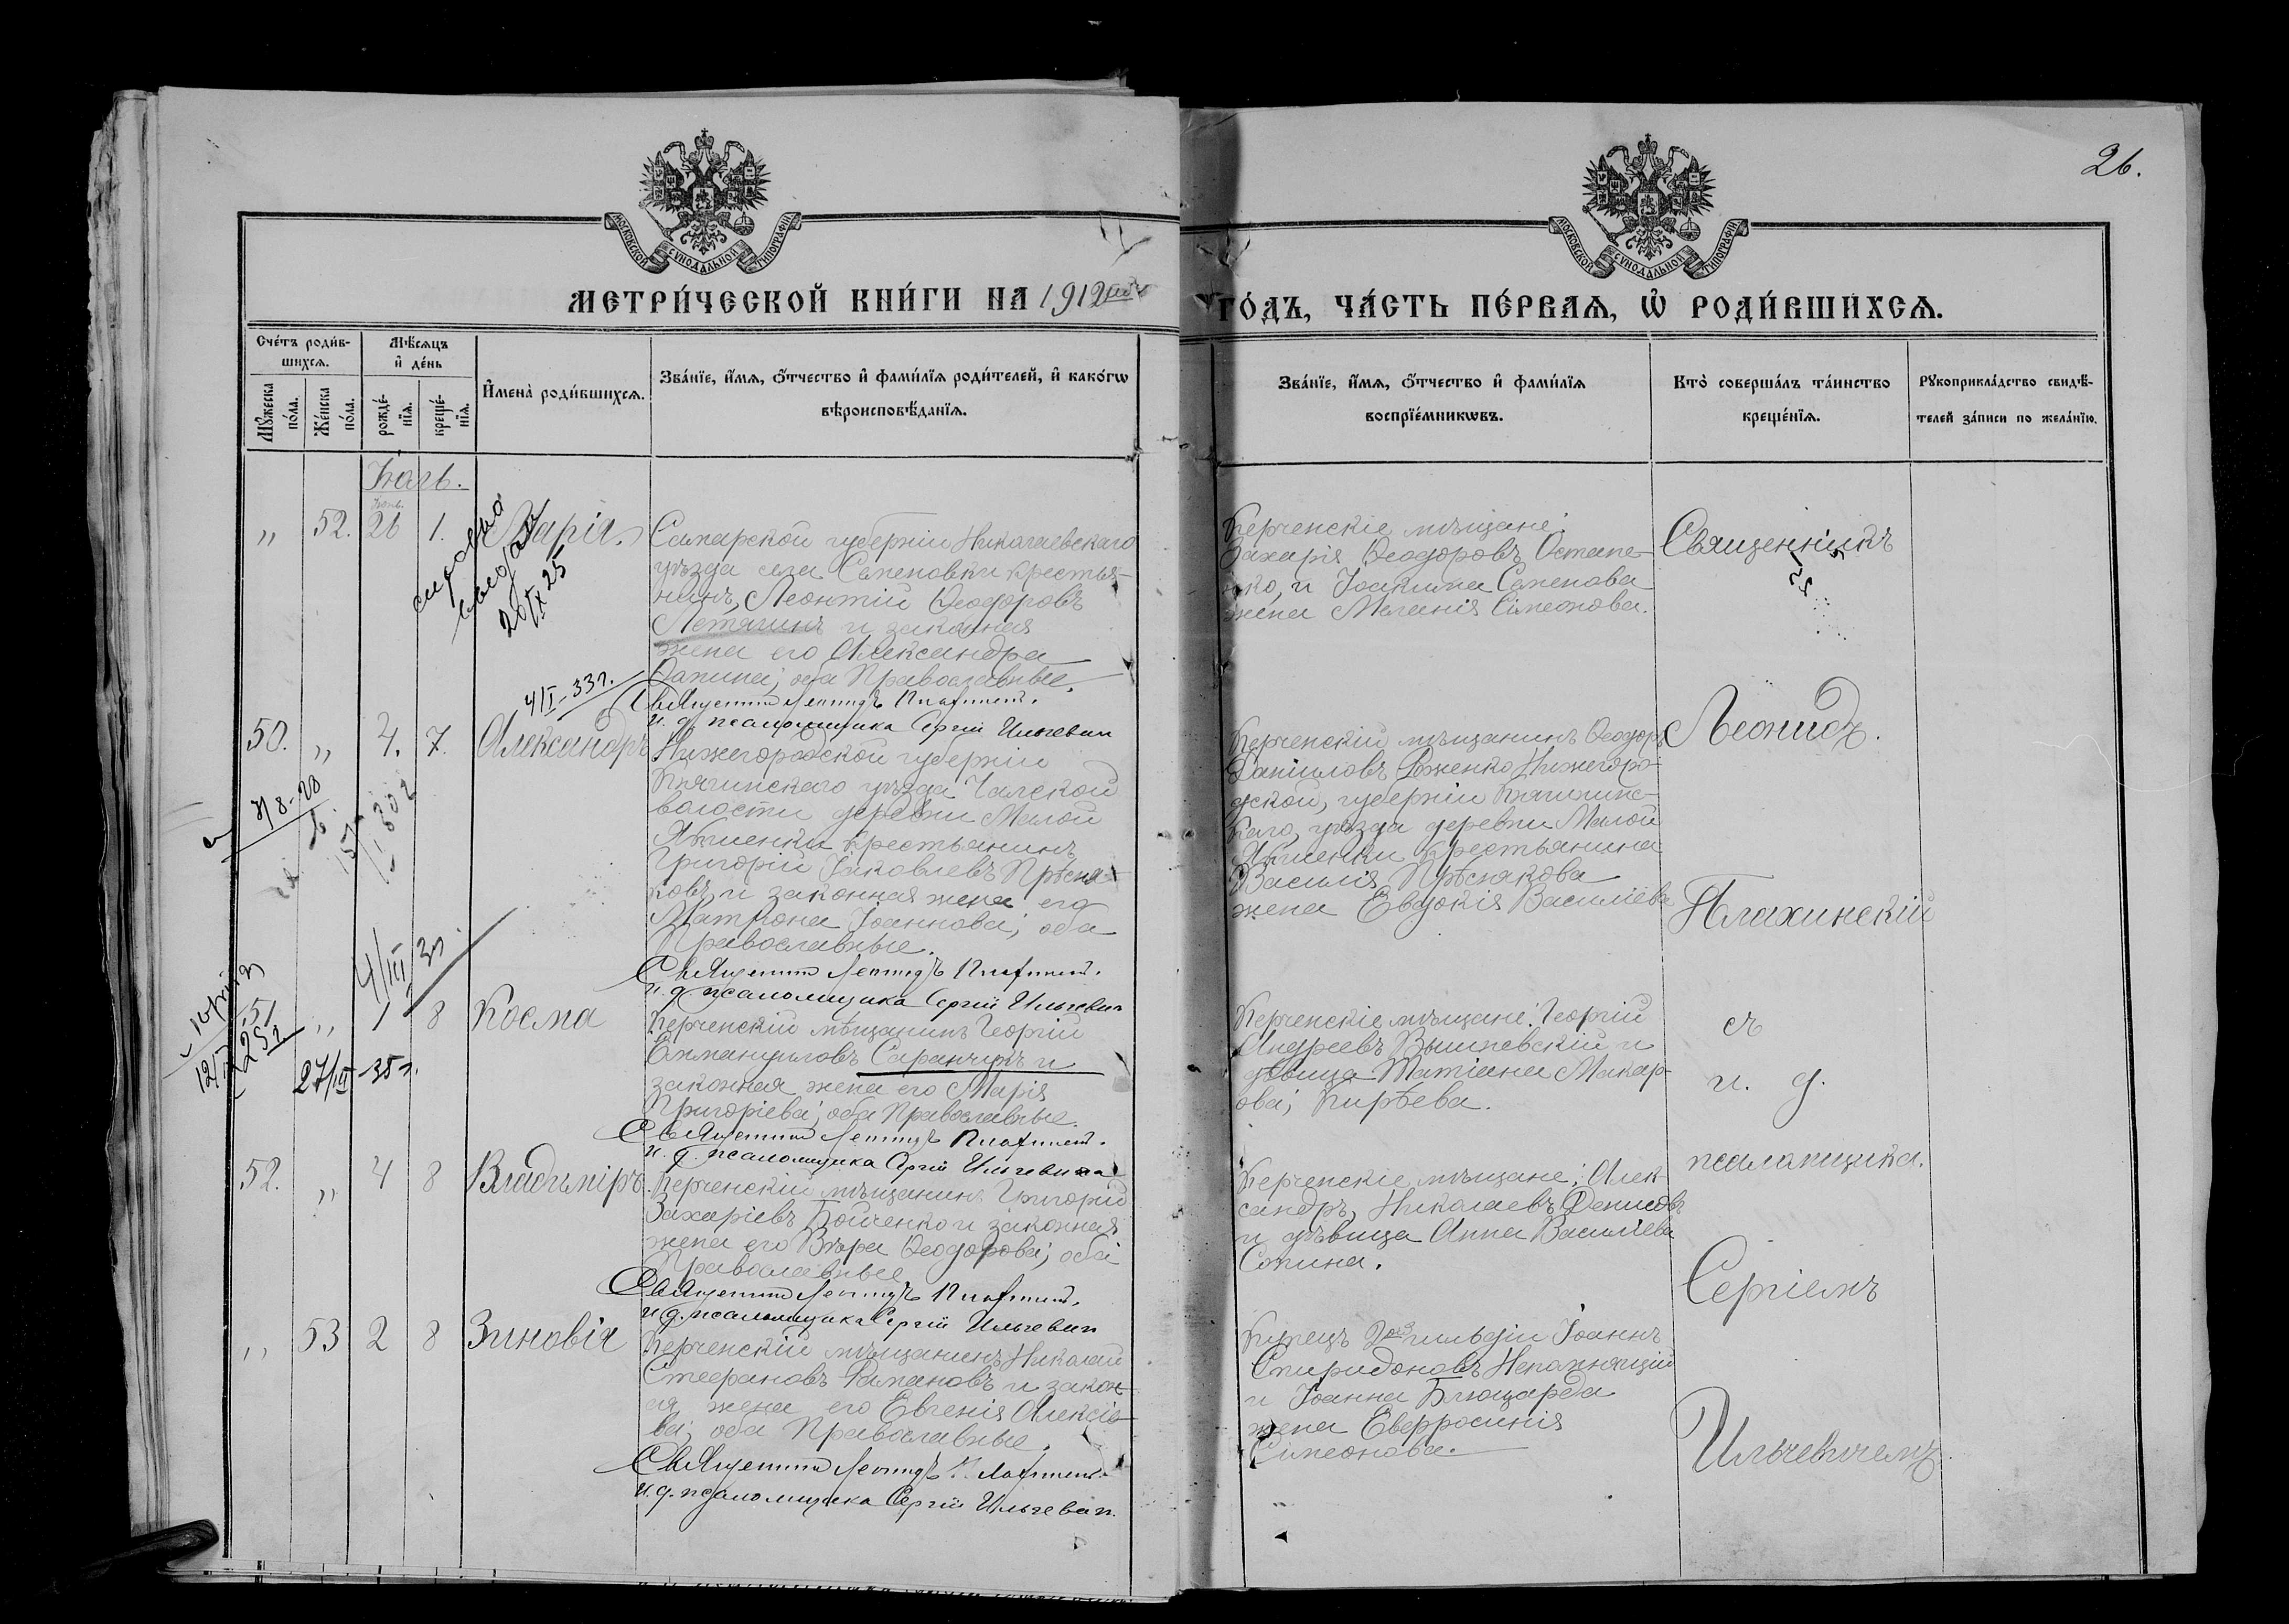 26.
МОСКОВСКОЙ СѴНОДАЛЬНОЙ ТИПОГРАФІИ
МОСКОВСКОЙ СѴНОДАЛЬНОЙ ТИПОГРАФІИ
МЕТРИ́ЧЕСКОЙ КНИ́ГИ НА 1912 ГО́ДЪ, ЧА́СТЬ ПЕ́РВАѦ, Ѡ҆ РОДИ́ВШИХСѦ.
Сче́тъ роди́в-
шихсѧ.
Мѣ́сѧцъ
и҆ де́нь
Мꙋ́жеска по́ла.
Же́нска по́ла.
рожде́-
нїѧ.
креще́-
нїѧ.
И҆мена̀ роди́вшихсѧ.
Зва́нїе, и҆́мѧ, ѻ҆́тчество и҆ фами́лїѧ роди́телей, и҆ како́гѡ
вѣроисповѣ́данїѧ.
Зва́нїе, и҆́мѧ, ѻ҆́тчество и҆ фами́лїѧ
воспрїе́мникѡвъ.
Кто̀ соверша́лъ та́инство
креще́нїѧ.
Рꙋкоприкла́дство свидѣ́-
телей за́писи по жела́нїю.
Іюль.
Іюнь
" 52. 26 1. Марія.
20/IX 25
Самарской губерніи Николаевскаго
уѣзда села Семеновки крестья-
нинъ, Леонтій Ѳеодоровъ
Летягинъ и законная
жена его Александра
оба Православные.
Священникъ Леонидъ Плахинскій.
и. д. псаломщика Сергій Ильчевич
Керченскіе мѣщане:
Захарія Ѳеодоровъ Остапе-
нко, и Іоакима Семенова
жена Меланія Сімеонова.
Священникъ
4/I-33г.
50. " 4. 7. Александръ
7/8-20
Нижегородской губерніи
Княгинскаго уѣзда Чалской
волости деревни Малой
Якшенки крестьянинъ
Григорій Іаковлевъ Прѣсня-
ковъ, и законная жена его
Матрона Іоаннова; оба
Православные.
Священникъ Леонидъ Плахинскій.
и. д. псаломщика Сергій Ильчевич
Керченскій мѣщанинъ Ѳеодоръ
Даніиловъ Нижегоро-
дской, губерніи Княгинс-
каго, уѣзда деревни Малой
Якшенки крестьянина
Василія Прѣснякова
жена Евдокія Василіева
Леонидъ.
Плахинскій
4/III
51 " 1 8 Косма
27/III-35г.
Керченскій мѣщанинъ Георгій
Еммануиловъ Саранчукъ и
законная жена его Марія
Григоріева; оба Православные.
Священникъ Леонидъ Плахинскій.
и. д. псаломщика Сергій Ильчевич
Керченскіе мѣщане: Георгій
Андреевъ Вышневскій и
дѣвица Татіана Макар-
ова; Кирѣева.
съ
и. д.
52. " 4 8 Владиміръ
Керченскій мѣщанинъ Григорій
Захаріевъ Бойченко и законная
жена его Вѣра Ѳеодорова; оба
Православные
Священникъ Леонидъ Плахинскій.
и д. псаломщика Сергій Ильчевич
Керченскіе мѣщане: Алек-
сандръ, Николаевъ Денисовъ
и дѣвица Анна Василіева
Сопина.
псаломщика.
Сергіемъ
" 53 2 8 Зиновія
Керченскій мѣщанинъ Николай
Стефановъ Романовъ и закон-
ая жена его Евгенія Алексіе-
ва; оба Православные.
Священникъ Леонидъ Плахинскій.
и. д. псаломщика Сергій Ильчевич.
Купецъ 2ой гильдіи Іоаннъ
Спиридоновъ Непомнящій
и Іоанна Блюцарда
жена Евфросинія
Сімеонова.
Ильчевичемъ.